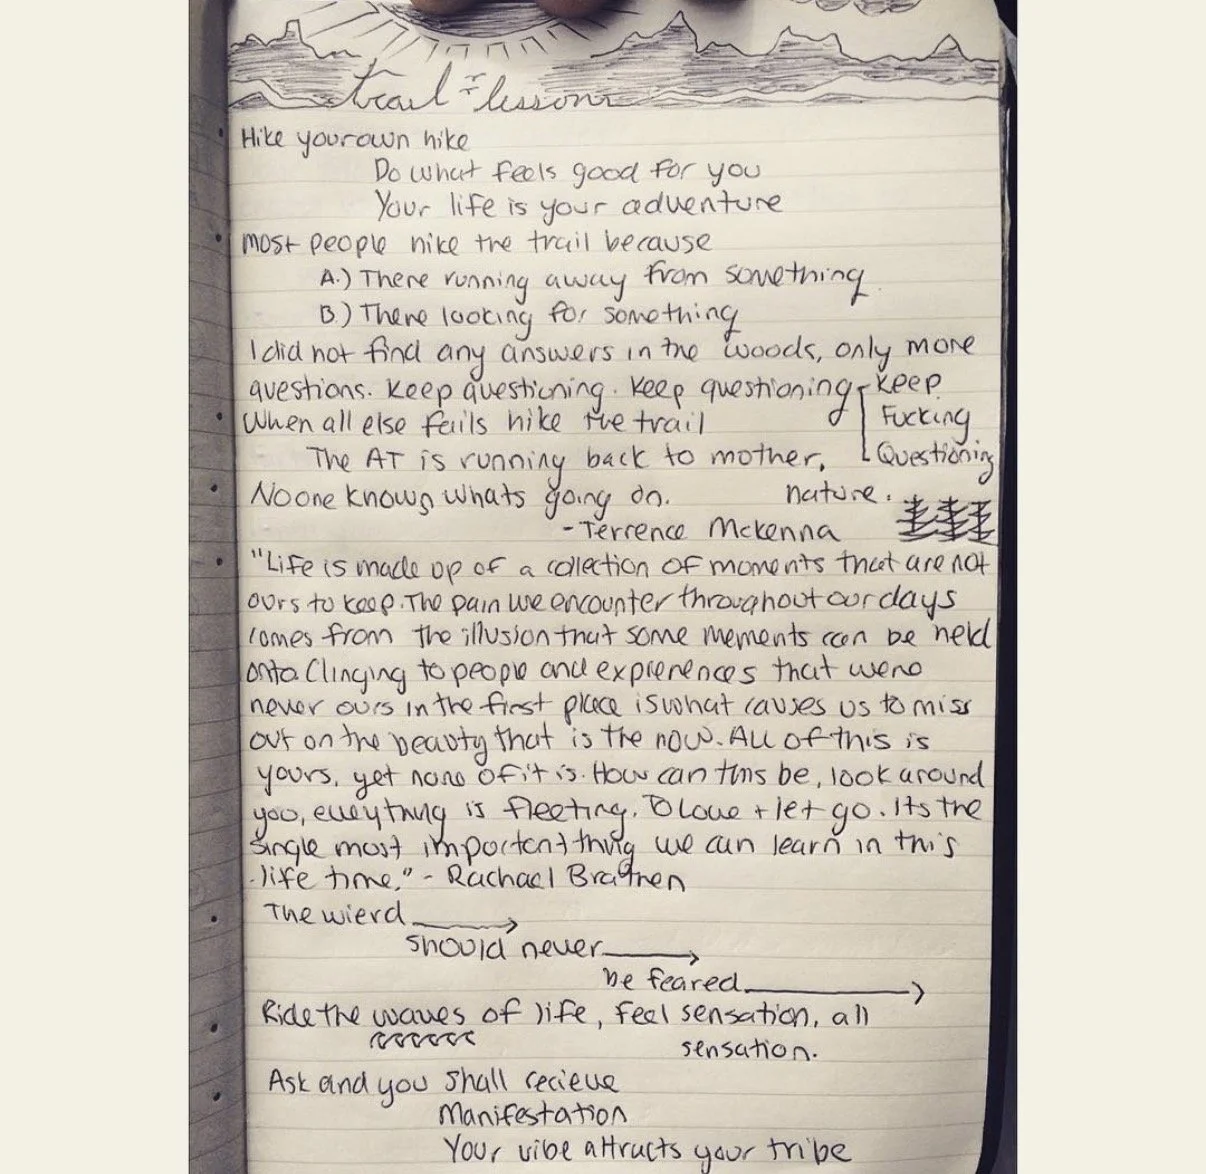 trail - lessons
Hike your own hike
Do what feels good for you
Your life is your adventure
most people hike the trail because
A.) There running away from something
B.) There looking for something
I did not find any answers in the woods, only more
questions. Keep questioning. Keep questioning Keep
Fucking
When all else fails hike the trail
The AT is running back to mother, Questioning
No one knows whats going on. nature.
- Terrence McKenna
"Life is made up of a collection of moments that are not
ours to keep. The pain we encounter throughout our days
comes from the illusion that some mements can be held
onto Clinging to people and exprerences that were
never ours in the first place is what causes us to miss
out on the beauty that is the now. All of this is
yours, yet none of it is. How can this be, look around
you, eveything is fleeting. To love + let go. Its the
single most important thing we can learn in this
life time." - Rachael Brathen
The wierd
should never
be feared
Ride the waves of life, feel sensation, all
sensation.
Ask and you shall recieve
Manifestation
Your vibe attracts your tribe